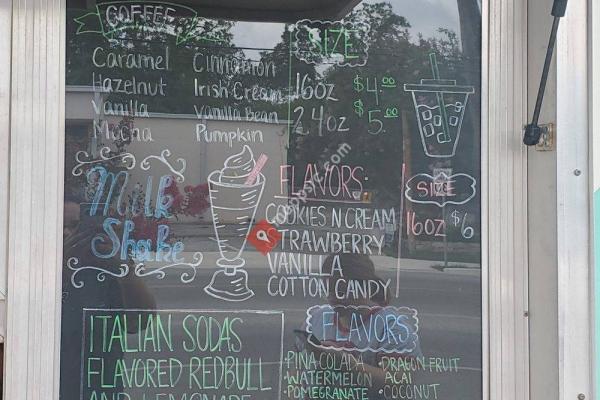 COFFEE
Caramel Cinnamon
Hazelnut Irish Cream
Vanilla Vanilla Bean
Mucha Pumpkin
SIZE
16oz $4.00
24oz $5.00
Milk
Shake
FLAVORS:
COOKIES N CREAM
STRAWBERRY
VANILLA
COTTON CANDY
SIZE
16oz $6
ITALIAN SODAS
FLAVORED REDBULL
AND LEMONADE
FLAVORS
•PINA COLADA •DRAGON FRUIT
•WATERMELON •ACAI
•POMEGRANATE •COCONUT